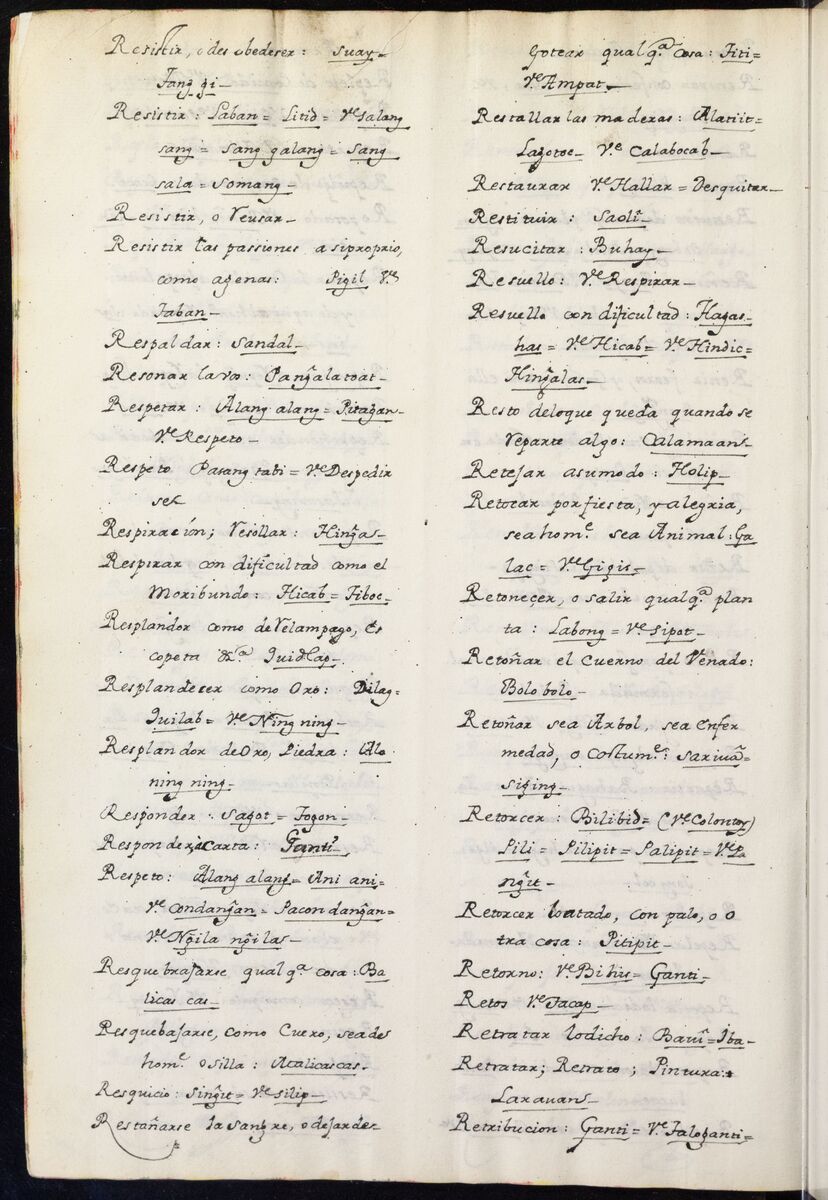 Resistir, o des obedeser: Suay=
Tang gi_
Resistir: Laban= Litid= Vᵉ Salang
sang= Sang galang= Sang
sala= Somang_
Resistir, o Veusar_
Resistir las passiones a siproprio,
como agenas: Pigil Vᵉ
Taban_
Respaldar: Sandal_
Resonar la voz: Pang̃alatoat_
Respetar: Alang alang= Pitagan_
Vᵉ Respeto_
Respeto Pasang tabi= Vᵉ Despedir
se
Respiracion; Vesollar: Hing̃as_
Respirar con dificultad como el
Moribundo: Hicab= Tiboc_
Resplandor como de Velampago, Es
copeta &ᵃ Quidlap_
Resplandeser como Oro: Dilag=
Quilab= Vᵉ Ning ning_
Resplandor de Oro, Piedra: Alo
ning ning_
Responder: Sagot= Togon_
Responder a Carta: Ganti_
Respeto: Alang alang= Ani ani_
Vᵉ Condang̃an= Pacon dang̃an=
Vᵉ Ng̃ila ng̃ilas_
Resquebrajarse qualqᵃ cosa: Ba
licas cas_
Resquebajarse, como Cuero, sea des
homᵉ o Silla: Acalicascas_
Resquicio: Sing̃it= Vᵉ Silip_
Restañarse la Sangre, o dejar des
Gotear qualqᵃ cosa: Titi=
Vᵉ Ampat_
Restallar las maderas: Alatiit=
Lagotoc_ Vᵉ Calabocab_
Restaurar Vᵉ Hallar= Desquitar_
Restituir: Saoli_
Resucitar: Buhay_
Resuello: Vᵉ Respirar_
Resuello con dificultad: Hagas_
has= Vᵉ Hicab= Vᵉ Hindic=
Hing̃alas_
Resto de lo que queda quando se
Veparte algo: Calamaans_
Retejar a su modo: Holip_
Retozar por fiesta, y alegria,
sea homᵉ sea Animal: Ga
lac= Vᵉ Gigis_
Retoneçer, o salir qualqᵃ plan
ta: Labong= Vᵉ Sipot_
Retoñar el Cuerno del Venado:
Bolo bolo_
Retoñar sea Arbol, sea Enfer
medad, o Costumᵉ: Sariuã=
siging_
Retorcer: Bilibid= (Vᵉ Colontoy)
Pili= Pilipit= Palipit= Vᵉ Pa
ng̃it_
Retorcer lo atado, con palo, o o
tra cosa: Pitipit_
Retorno: Vᵉ Bihis= Ganti_
Retos Vᵉ Tacap_
Retratar lo dicho: Baui= Iba_
Retratar; Retrato; Pintura:
Larauans_
Retribucion: Ganti= Vᵉ Taloganti=